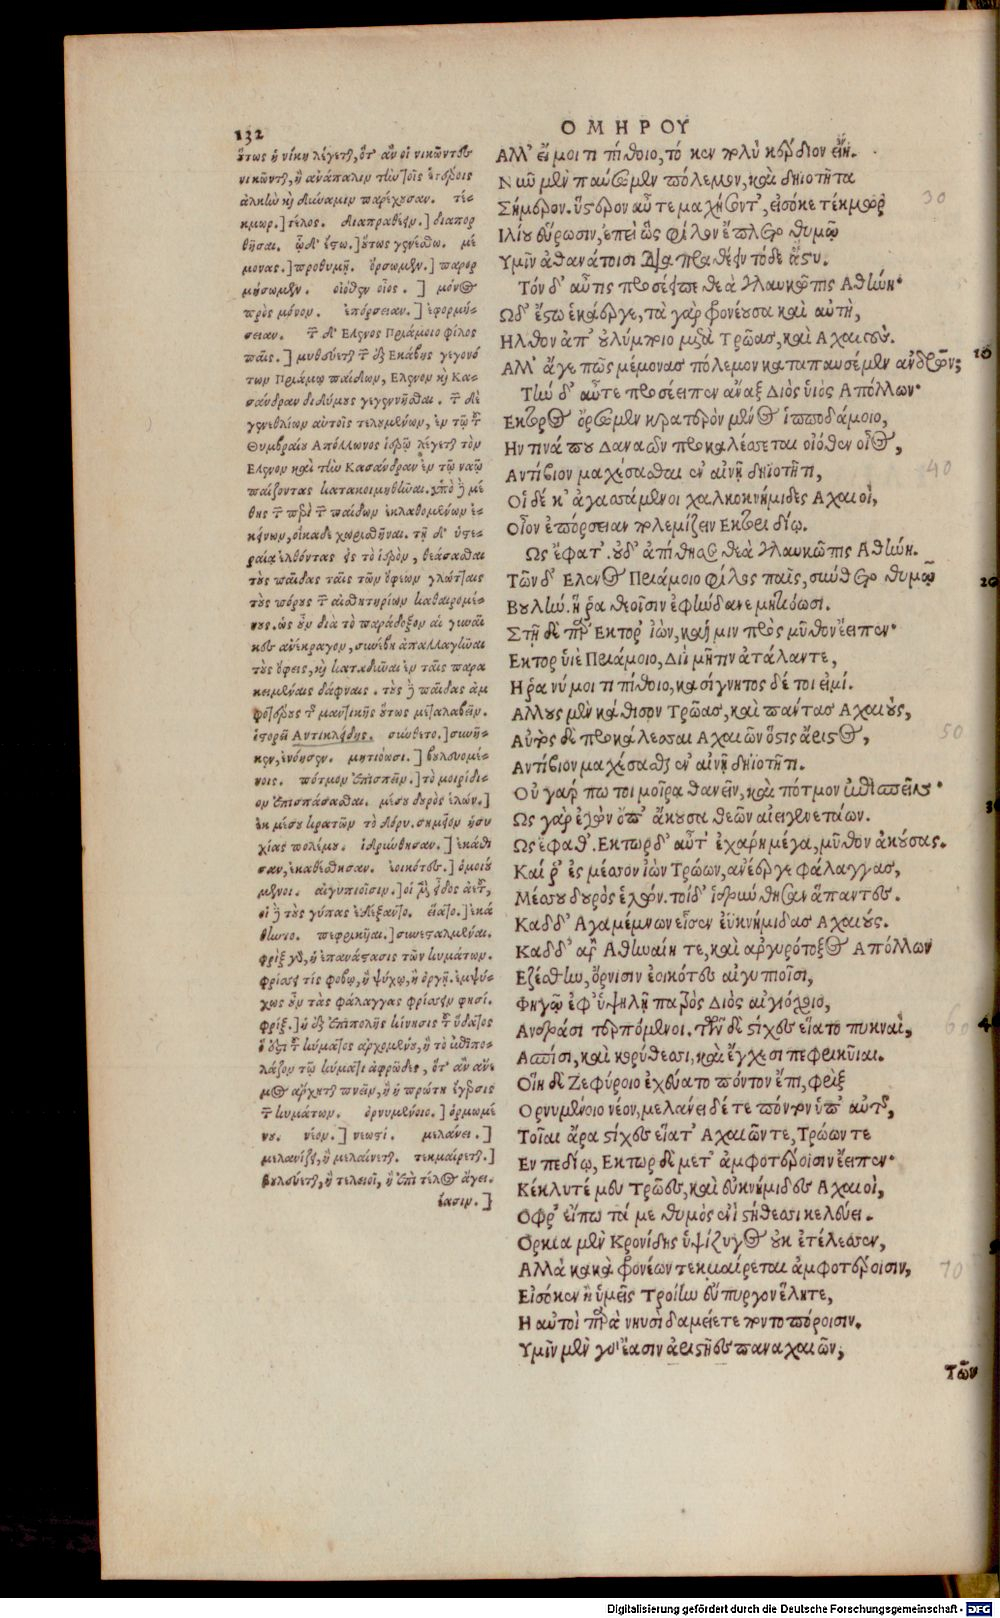 132
ΟΜΗΡΟΥ
οὕτως ἡ νίκη λέγεται, ὅτ' ἂν οἱ νικῶντες
νικῶνται, ἢ ἀνάπαλιν τὴν τοῖς ἑτέροις
ἀλκὴν καὶ δύναμιν παρέχουσαν. τέ-
κμωρ.] τέλος. διαπραθέειν.] διαπορ
θῆσαι. ὧδ' ἔστω.] οὕτως γενέσθω. μέ
μονας.] προθυμῇ. ὄρσωμεν.] παρορ
μήσωμεν. οἰόθεν οἶος.] μόνος
πρὸς μόνον. ἐπόρσειαν.] ἐφορμή-
σειαν. τοῦ δ' Ελενος Πριάμοιο φίλος
παῖς.] μυθεύεται τοῦ ἐξ Εκάβης γεγονό
των Πριάμῳ παίδων, Ελενον καὶ Κα-
σάνδραν διδύμους γεγενῆσθαι. τῶν δὲ
γενεθλίων αὐτοῖς τελουμένων, ἐν τῷ τοῦ
Θυμβραίου Απόλλωνος ἱερῷ λέγεται τὸν
Ελενον καὶ τὴν Κασάνδραν ἐν τῷ ναῷ
παίζοντας κατακοιμηθῆναι. ὑπὸ δὲ μέ
θης τῶν περὶ τῶν παίδων ἐκλαθομένων ἐ-
κείνων, οἴκαδε χωρισθῆναι. τῇ δ' ὑστε-
ραίᾳ ἐλθόντας εἰς τὸ ἱερὸν, θεάσασθαι
τοὺς παῖδας ταῖς τῶν ὄφεων γλώτταις
τοὺς πόρους τῶν αἰσθητηρίων καθαιρομέ-
νους. ὡς οὖν διὰ τὸ παράδοξον αἱ γυναῖ
κες ἀνέκραγον, συνέβη ἀπαλλαγῆναι
τοὺς ὄφεις, καὶ καταδῦναι ἐν ταῖς παρα
κειμέναις δάφναις. τοὺς δὲ παῖδας ἀμ
φοτέρους τῆς μαντικῆς οὕτως μεταλαβεῖν.
ἱστορεῖ Αντικλείδης. σύνθετο.] συνῆ-
κεν, ἐνόησεν. μητιόωσι.] βουλευομέ-
νοις. πότμον ἐπισπεῖν.] τὸ μοιρίδι-
ον ἐπισπάσασθαι. μέσου δουρὸς ἑλών.]
ἐκ μέσου κρατῶν τὸ δόρυ. σημεῖον ἡσυ
χίας πολέμου. ἱδρύνθησαν.] ἐκάθι
σαν, ἐκαθέσθησαν. ἐοικότες.] ὁμοιού
μενοι. αἰγυπιοῖσιν.] οἱ μὲν εἶδος ἀετοῦ,
οἱ δὲ τοὺς γύπας ἐδέξαντο. εἵατο.] ἐκά
θηντο. πεφρικῆαι.] συνεσταλμέναι.
φρὶξ γὰρ, ἡ ἐπανάστασις τῶν κυμάτων.
φρίσσει τίς φόβῳ, ἢ ψύχῳ, ἢ ὀργῇ. ἐμψύ-
χως οὖν τὰς φάλαγγας φρίσσειν φησί.
φρίξ.] ἡ ἐξ ἐπιπολῆς κίνησις τοῦ ὕδατος
ὅ ἐστι τοῦ κύματος ἀρχομένου, ἢ τὸ ἐπιπο-
λάζον τῷ κύματι ἀφρῶδες, ὅτ' ἂν ἄνε
μος ἄρχηται πνεῖν, ἢ ἡ πρώτη ἔγερσις
τῶν κυμάτων. ὀρνυμένοιο.] ὁρμωμέ
νου. νέον.] νεωστί. μελάνει.]
μελανίζει, ἢ μελαίνεται. τεκμαίρεται.]
βουλεύεται, ἢ τελειοῖ, ἢ ἐπὶ τέλος ἄγει.
ἔασιν.]
Αλλ' εἴ μοι τι πίθοιο, τό κεν πολὺ κέρδιον εἴη.
Νῦν μὲν παύσωμεν πόλεμον, καὶ δηιοτῆτα
Σήμερον. ὕστερον αὖτε μαχήσοντ', εἰσόκε τέκμωρ
Ιλίου εὕρωσιν, ἐπεὶ ὣς φίλον ἔπλετο θυμῷ
Υμῖν ἀθανάτοισι διαπραθέειν τόδε ἄστυ.
Τόν δ' αὖτις προσέειπε θεὰ γλαυκῶπις Αθήνη·
Ωδ' ἔστω ἑκάεργε, τὰ γὰρ φρονέουσα καὶ αὐτὴ,
Ηλθον ἀπ' οὐλύμποιο μετὰ Τρῶας, καὶ Αχαιούς.
Αλλ' ἄγε πῶς μέμονας πόλεμον καταπαυσέμεν ἀνδρῶν;
Τὴν δ' αὖτε προσέειπεν ἄναξ Διὸς ὑιὸς Απόλλων·
Εκτορος ὄρσωμεν κρατερὸν μένος ἱπποδάμοιο,
Ην τινά που Δαναῶν προκαλέσσεται οἰόθεν οἶος,
Αντίβιον μαχέσασθαι ἐν αἰνῇ δηϊοτῆτι,
Οἱ δέ κ' ἀγασσάμενοι χαλκοκνήμιδες Αχαιοὶ,
Οἶον ἐπόρσειαν πολεμίζειν Εκτορι δίῳ.
Ως ἔφατ'. οὐδ' ἀπίθησε θεὰ γλαυκῶπις Αθήνη.
Τῶν δ' Ελενος Πριάμοιο φίλος παῖς, σύνθετο θυμῷ
Βουλὴν. ἥ ῥα θεοῖσιν ἐφήνδανε μητιόωσι.
Στῆ δὲ παρ' Εκτορ' ἰὼν, καί μιν πρὸς μῦθον ἔειπεν·
Εκτορ ὑιὲ Πριάμοιο, Διὶ μῆτιν ἀτάλαντε,
Η ῥα νύ μοι τι πίθοιο, κασίγνητος δέ τοι εἰμί.
Αλλους μὲν κάθισον Τρῶας, καὶ πάντας Αχαιοὺς,
Αὐτὸς δὲ προκάλεσσαι Αχαιῶν ὅστις ἄριστος,
Αντίβιον μαχέσασθαι ἐν αἰνῇ δηϊοτῆτι.
Οὐ γάρ πω τοι μοῖρα θανεῖν, καὶ πότμον ἐπισπεῖν·
Ως γὰρ ἐγὼν ὄπ' ἄκουσα θεῶν αἰειγενετάων.
Ως ἔφαθ'. Εκτωρ δ' αὖτ' ἐχάρη μέγα, μῦθον ἀκούσας.
Καί ῥ' ἐς μέσσον ἰὼν Τρώων, ἀνέεργε φάλαγγας,
Μέσσου δουρὸς ἑλών. τοὶ δ' ἱδρύνθησαν ἅπαντες.
Καδδ' Αγαμέμνων εἷσεν ἐϋκνήμιδας Αχαιούς.
Καδδ' ἄρ' Αθηναίη τε, καὶ ἀργυρότοξος Απόλλων
Εζέσθην, ὄρνισιν ἐοικότες αἰγυπιοῖσι,
Φηγῷ ἐφ' ὑψηλῇ πατρὸς Διὸς αἰγιόχοιο,
Ανδράσι τερπόμενοι. τῶν δὲ στίχες εἵατο πυκναὶ,
Ασπίσι, καὶ κορύθεσσι, καὶ ἔγχεσι πεφρικυῖαι.
Οἵη δὲ Ζεφύροιο ἐχεύατο πόντον ἔπι, φρὶξ
Ορνυμένοιο νέον, μελάνει δέ τε πόντον ὑπ' αὐτῆς,
Τοῖαι ἄρα στίχες εἵατ' Αχαιῶν τε, Τρώων τε
Εν πεδίῳ, Εκτωρ δὲ μετ' ἀμφοτέροισιν ἔειπεν·
Κέκλυτέ μευ Τρῶες, καὶ ἐυκνήμιδες Αχαιοὶ,
Οφρ' εἴπω τά με θυμὸς ἐνὶ στήθεσσι κελεύει.
Ορκια μὲν Κρονίδης ὑψίζυγος οὐκ ἐτέλεσσεν,
Αλλὰ κακὰ φρονέων τεκμαίρεται ἀμφοτέροισιν,
Εἰσόκεν ἢ ὑμεῖς Τροίην εὔπυργον ἕλητε,
Η αὐτοὶ παρὰ νηυσὶ δαμείετε ποντοπόροισιν.
Υμῖν μὲν γὰρ ἔασιν ἀριστῆες παναχαιῶν,
Τῶν
10
20
30
40
50
60
70
Digitalisierung gefördert durch die Deutsche Forschungsgemeinschaft - DFG